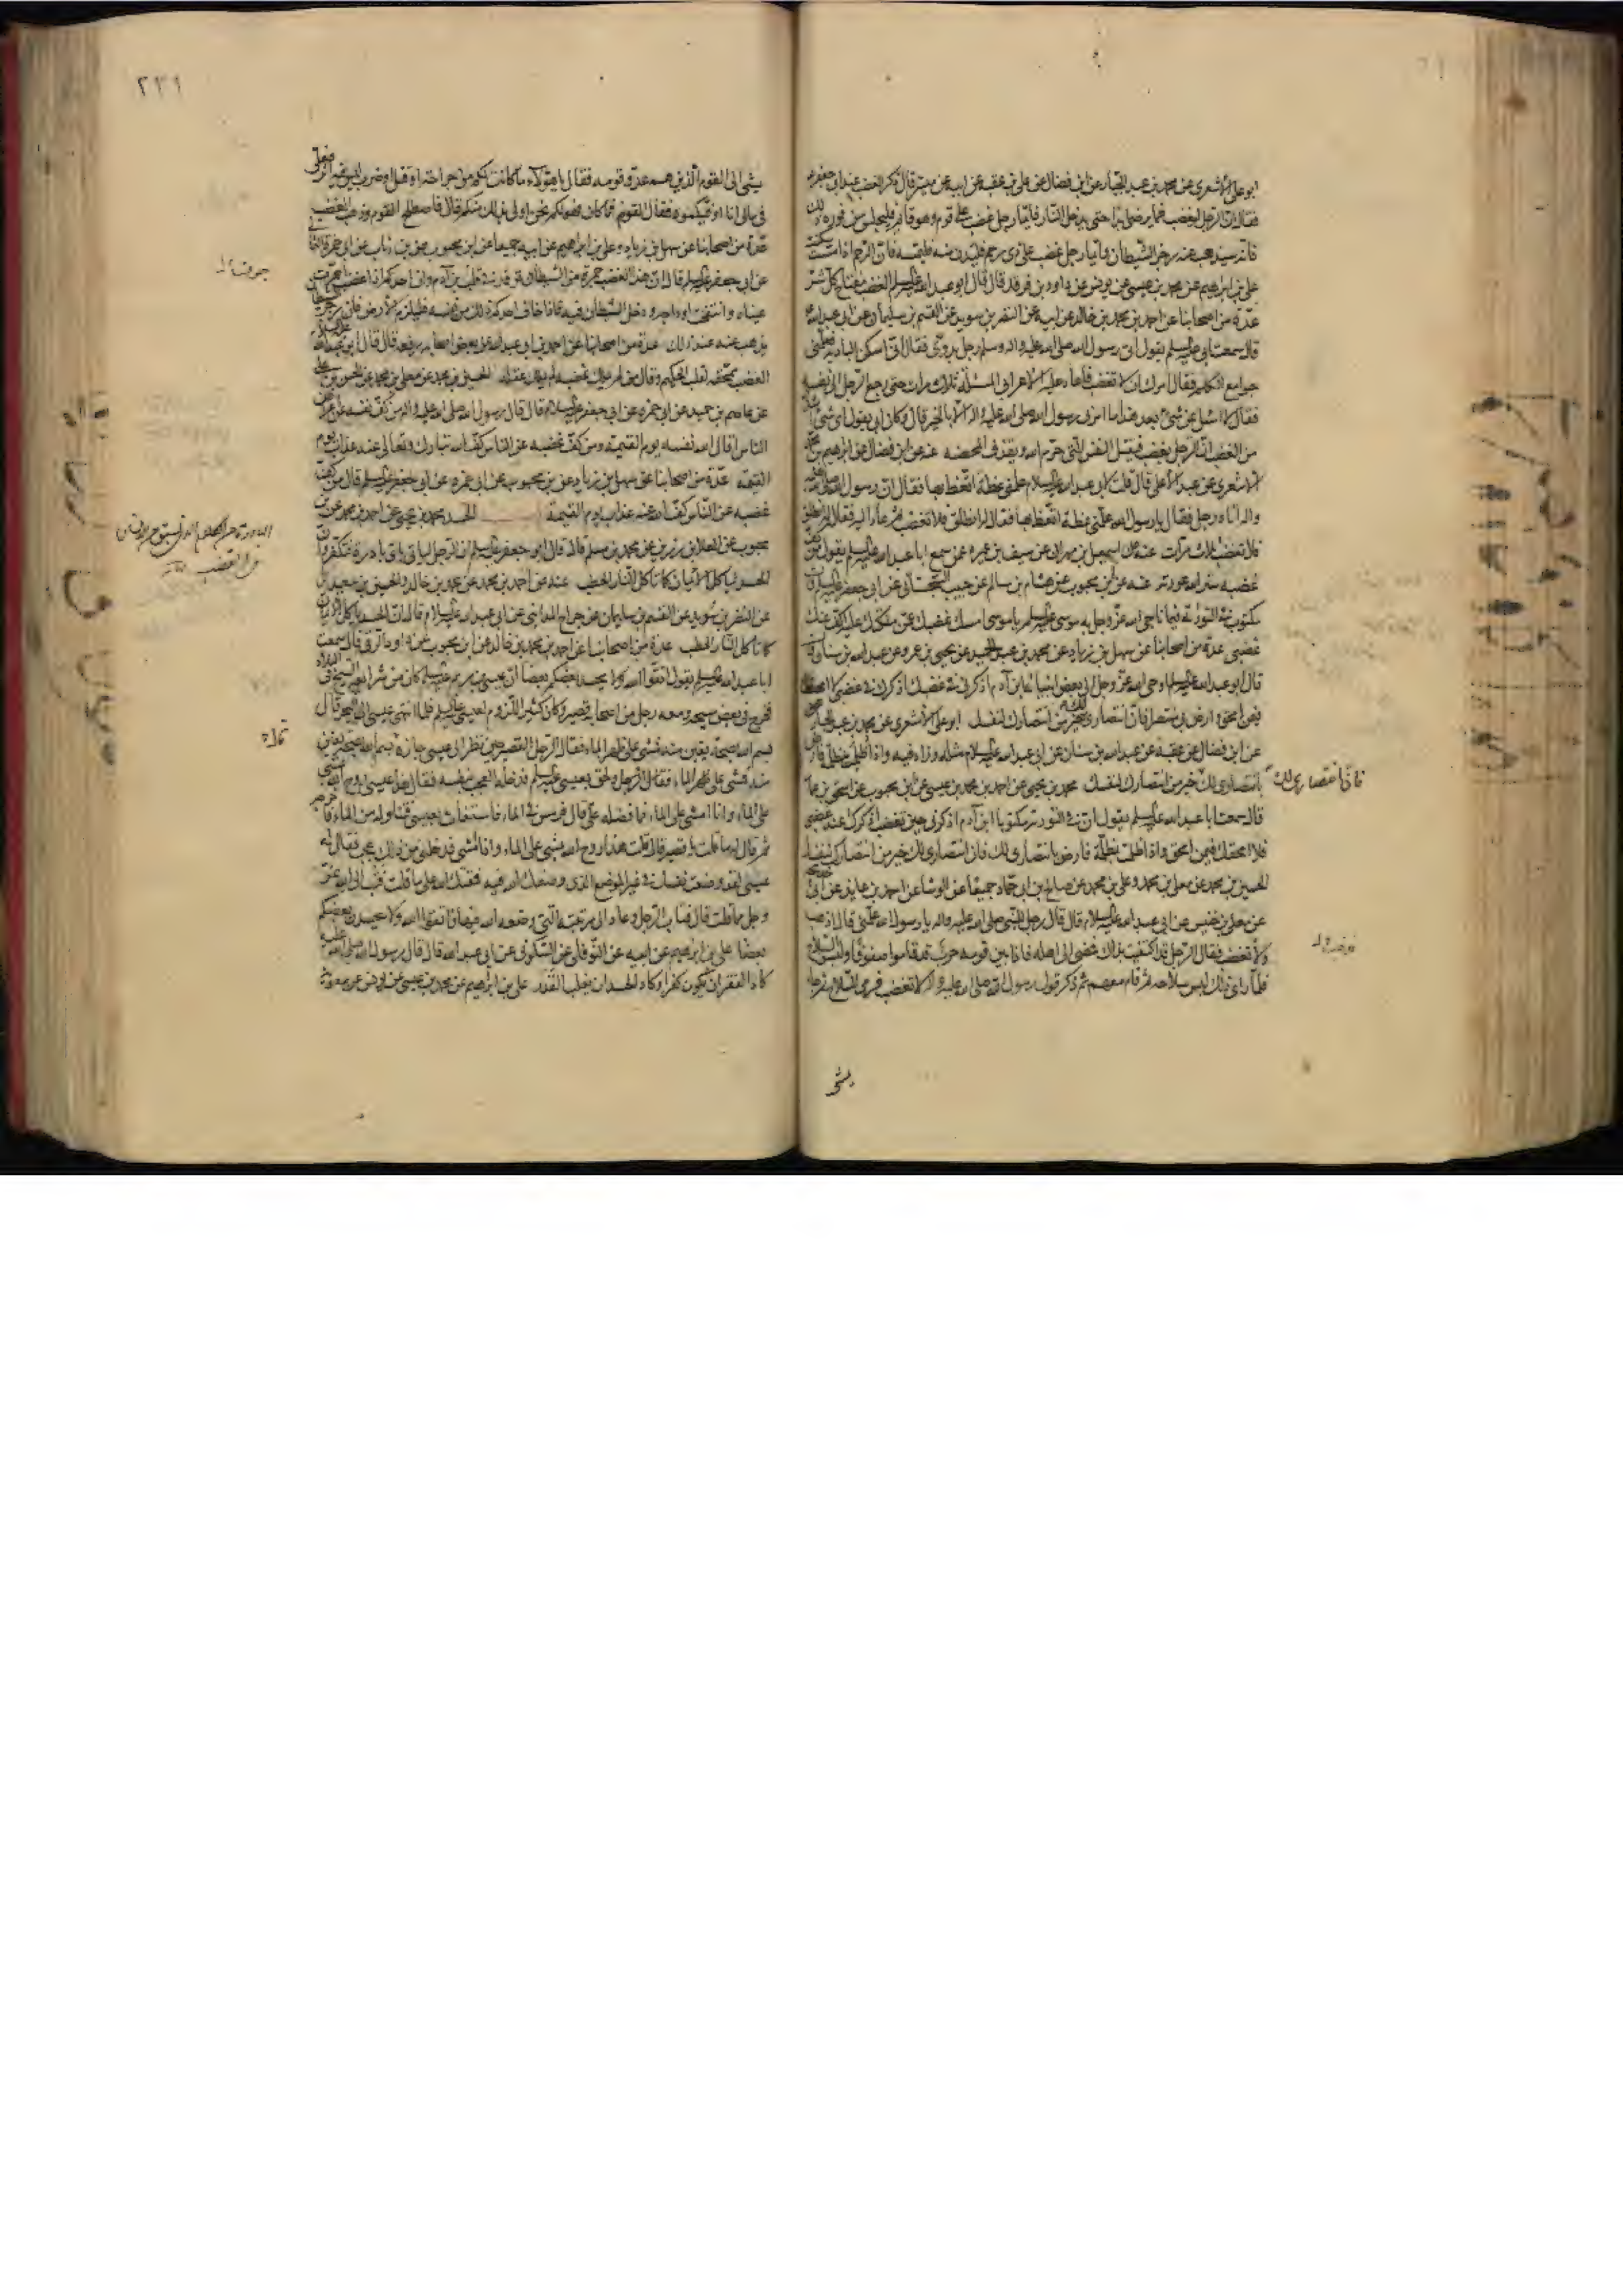 ابو علی الاشعری عن محمد بن عبد الجبار عن ابن فضال عن علی بن عقبه عن ابیه عن میسر قال ذکر الغضب عند ابی جعفر ع
فقال ان الرجل لیغضب فما یرضی ابدا حتی یدخل النار فایما رجل غضب علی قوم وهو قائم فلیجلس من فوره ذلک
فانه سیذهب عنه رجز الشیطان وایما رجل غضب علی ذی رحم فلیدن منه فلیمسه فان الرحم اذا مست سکنت
علی بن ابراهیم عن محمد بن عیسی عن یونس عن داود بن فرقد قال قال ابو عبد الله علیه السلم الغضب مفتاح کل شر
عدة من اصحابنا عن احمد بن محمد بن خالد عن ابیه عن النضر بن سوید عن القسم بن سلیمان عن ابی عبد الله
قال سمعت ابی علیه السلم یقول اتی رسول الله صلی الله علیه واله وسلم رجل بدوی فقال انی اسکن البادیه فعلمنی
جوامع الکلم فقال امرک ان لا تغضب فاعاد علیه الاعرابی المسئلة ثلاث مرات حتی رجع الرجل الی نفسه
فقال لا اسئل عن شئ بعد هذا ما امرنی رسول الله صلی الله علیه واله الا بالخیر قال وکان ابی یقول ای شئ اشد
من الغضب ان الرجل یغضب فیقتل النفس التی حرم الله ویقذف المحصنه عنه عن ابن فضال عن ابراهیم بن محمد
الاشعری عن عبد الاعلی قال قلت لابی عبد الله علیه السلام علمنی عظة اتعظ بها فقال ان رسول الله صلی الله علیه
واله اتاه رجل فقال یا رسول الله علمنی عظة اتعظ بها فقال له انطلق فلا تغضب ثم عاد الیه فقال له انطلق
فلا تغضب ثلاث مرات عنه عن اسمعیل بن مهران عن سیف بن عمیره عمن سمع ابا عبد الله علیه السلم یقول من کف
غضبه ستر الله عورته عنه عن ابن محبوب عن هشام بن سالم عن حبیب السجستانی عن ابی جعفر علیه السلم قال
مکتوب فی التورٰیة فیما ناجی الله عز وجل به موسی علیه السلم یا موسی امسک غضبک عمن ملکتک علیه اکف عنک
غضبی عدة من اصحابنا عن سهل بن زیاد عن محمد بن عبد الحمید عن یحیی بن عمرو عن عبد الله بن سنان قال
قال ابو عبد الله علیه السلم اوحی الله عز وجل الی بعض انبیائه ابن آدم اذکرنی فی غضبک اذکرک فی غضبی لا امحقک
فیمن امحق وارض بی منتصرا فان انتصاری لک خیر من انتصارک لنفسک ابو علی الاشعری عن محمد بن عبد الجبار
عن ابن فضال عن عقبه عن عبد الله بن سنان عن ابی عبد الله علیه السلام مثله وزاد فیه واذا ظلمت بمظلمة فارض
بانتصاری لک خیر من انتصارک لنفسک محمد بن یحیی عن احمد بن محمد بن عیسی عن ابن محبوب عن اسحق بن عمار
فان انتصاری لک
قال سمعت ابا عبد الله علیه السلم یقول ان فی التوریة مکتوبا یا ابن آدم اذکرنی حین تغضب اذکرک عند غضبی
فلا امحقک فیمن امحق واذا ظلمت بمظلمة فارض بانتصاری لک فان انتصاری لک خیر من انتصارک لنفسک
الحسین بن محمد عن معلی بن محمد وعلی بن محمد عن صالح بن ابی حماد جمیعا عن الوشا عن احمد بن عائذ عن ابی خدیجة
عن معلی بن خنیس عن ابی عبد الله علیه السلام قال قال رجل للنبی صلی الله علیه واله یا رسول الله علمنی قال اذهب
ولا تغضب فقال الرجل قد اکتفیت بذلک فمضی الی اهله فاذا بین قومه حرب قد قاموا صفوفا ولبسوا السلاح
فلما رای ذلک لبس سلاحه ثم قام معهم ثم ذکر قول رسول الله صلی الله علیه واله لا تغضب فرمی السلاح ثم جاء
یمشی
٢٣١
یمشی الی القوم الذین هم عدو قومه فقال یا هؤلاء ما کانت لکم من جراحة او قتل او ضرب لیس فیه اثر فعلی
فی مالی انا اوفیکموه فقال القوم فما کان فهو لکم نحن اولی بذلک منکم قال فاصطلح القوم وذهب الغضب
عدة من اصحابنا عن سهل بن زیاد وعلی بن ابراهیم عن ابیه جمیعا عن ابن محبوب عن ابن رئاب عن ابی حمزة الثمالی
عن ابی جعفر علیه السلم قال ان هذا الغضب جمرة من الشیطان توقد فی قلب ابن آدم وان احدکم اذا غضب احمرت
عیناه وانتفخت اوداجه ودخل الشیطان فیه فاذا خاف احدکم ذلک من نفسه فلیلزم الارض فان رجز الشیطان
یذهب عنه عند ذلک عدة من اصحابنا عن احمد بن ابی عبد الله عن بعض اصحابه رفعه قال قال ابو عبد الله علیه السلام
الغضب ممحقة لقلب الحکیم وقال من لم یملک غضبه لم یملک عقله الحسین بن محمد عن معلی بن محمد عن الحسن بن علی
عن عاصم بن حمید عن ابی حمزه عن ابی جعفر علیه السلام قال قال رسول الله صلی الله علیه واله من کف نفسه عن اعراض
الناس اقال الله نفسه یوم القیمة ومن کف غضبه عن الناس کف الله تبارک وتعالی عنه عذاب یوم
القیمة عدة من اصحابنا عن سهل بن زیاد عن ابن محبوب عن ابی حمزه عن ابی جعفر علیه السلم قال من کف
غضبه عن الناس کف الله عنه عذاب یوم القیمة الحسد محمد بن یحیی عن احمد بن محمد عن ابن
محبوب عن العلا بن رزین عن محمد بن مسلم قال قال ابو جعفر علیه السلم ان الرجل لیاتی بای بادرة فتکفر وان
الحسد لیاکل الایمان کما تاکل النار الحطب عنه عن احمد بن محمد عن محمد بن خالد والحسین بن سعید
عن النضر بن سوید عن القسم بن سلیمان عن جراح المداینی عن ابی عبد الله علیه السلام قال ان الحسد یاکل الایمان
کما تاکل النار الحطب عدة من اصحابنا عن احمد بن محمد بن خالد عن ابن محبوب عن داود الرقی قال سمعت
ابا عبد الله علیه السلم یقول اتقوا الله ولا یحسد بعضکم بعضا ان عیسی بن مریم علیه السلم کان من شرایعه السیح فی البلاد
فخرج فی بعض سیحه ومعه رجل من اصحابه قصیر وکان کثیر اللزوم لعیسی علیه السلم فلما انتهی عیسی الی البحر قال
بسم الله بصحة یقین منه فمشی علی ظهر الماء فقال الرجل القصیر حین نظر الی عیسی جازه بسم الله بصحة یقین
منه فمشی علی ظهر الماء فقال الرجل ولحق بعیسی علیه السلم فدخله العجب بنفسه فقال هذا عیسی روح الله یمشی
علی الماء وانا امشی علی الماء فما فضله علی قال فرمس فی الماء فاستغاث بعیسی فتناوله من الماء فاخرجه
ثم قال له ما قلت یا قصیر قال قلت هذا روح الله یمشی علی الماء وانا امشی فدخلنی من ذلک عجب فقال له
عیسی لقد وضعت نفسک فی غیر الموضع الذی وضعک الله فیه فمقتک الله علی ما قلت فتب الی الله عز
وجل مما قلت قال فتاب الرجل وعاد الی مرتبته التی وضعه الله فیها فاتقوا الله ولا یحسدن بعضکم
بعضا علی بن ابراهیم عن ابیه عن النوفلی عن السکونی عن ابی عبد الله قال قال رسول الله صلی الله علیه
کاد الفقر ان یکون کفرا وکاد الحسد ان یغلب القدر علی بن ابراهیم عن محمد بن عیسی عن یونس عن معویة